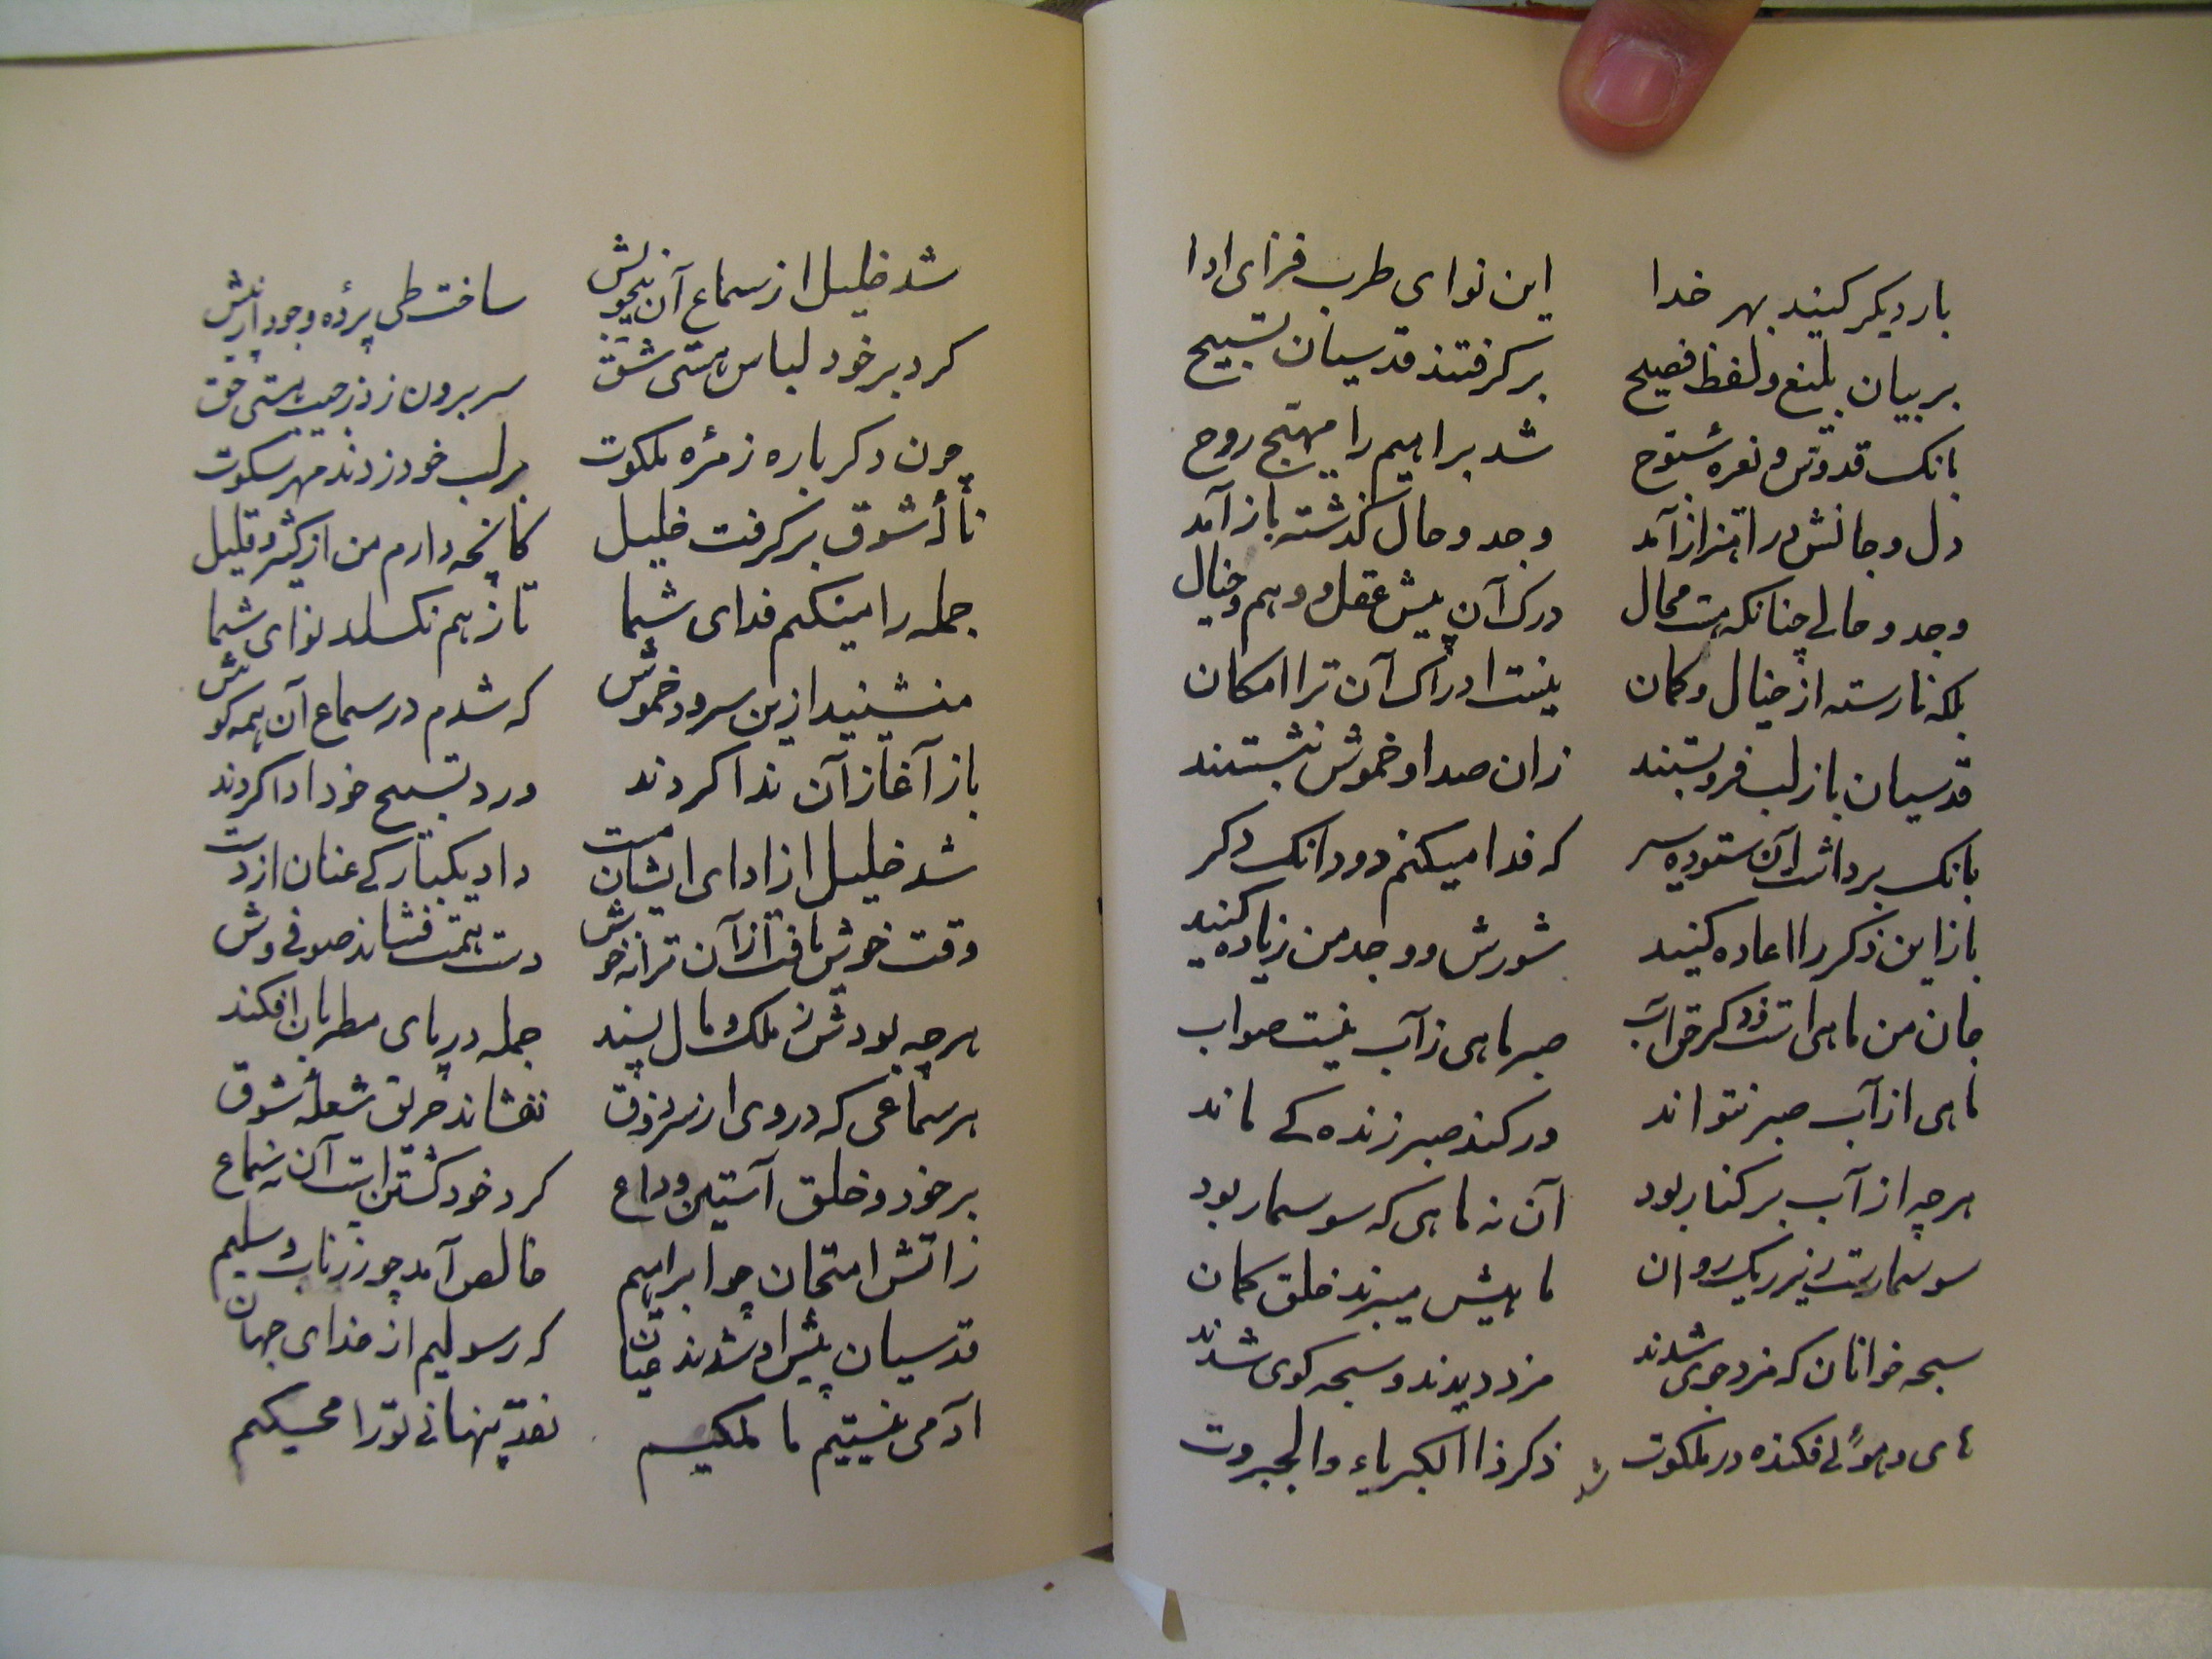 بار دیکر کنید بهر خدا این نوای طرب فزای ادا
بر بیان بلیغ و لفظ فصیح بر کرفتند قدسیان تسبیح
بانک قدوس و نعره سبوح شد براهیم را مهیج روح
دل و جانش در اهتزاز آمد وجد و حال کذشته باز آمد
وجد و حالی چنانکه هست محال درک آن پیش عقل و وهم و خیال
بلکه نارسته از خیال و کمان نیست ادراک آن ترا امکان
قدسیان باز لب فرو بستند زان صدا و خموش نشستند
بانک برداشت آن ستوده سیر که فدا میکنم دو دانک دکر
باز این ذکر را اعاده کنید شورش و وجد من زیاده کنید
جان من ماهی است ذکر حق آب صبر ماهی ز آب نیست صواب
ماهی از آب صبر نتواند ور کند صبر زنده کی ماند
هر چه از آب بر کنار بود آن نه ماهی که سوسمار بود
سوسمارست زیر ریک روان ماهیش میبرند خلق کمان
سبحه خوانان که مزد جوی شدند مزد دیدند و سبحه کوی شدند
های و هوئی فکنده در ملکوت ذکر ذا الکبریاء والجبروت
شد
شد خلیل از سماع آن بیخویش ساخت طی پرده وجود از پیش
کرد بر خود لباس هستی شق سر برون زد ز جیب هستی حق
چون دکر باره زمره ملکوت بر لب خود زدند مهر سکوت
نالهٔ شوق بر کرفت خلیل کانچه دارم من از کثیر و قلیل
جمله را میکنم فدای شما تا ز هم نکسلد نوای شما
منشینید ازین سرود خموش که شدم در سماع آن همه کوش
باز آغاز آن ندا کردند ورد تسبیح خود ادا کردند
شد خلیل از ادای ایشان مست داد یکبارکی عنان از دست
وقت خوش یافت از آن ترانه خوش دست همت فشاند صوفی وش
هر چه بودش ز ملک و مال پسند جمله در پای مطربان افکند
هر سماعی که در وی از سر ذوق نفشاند حریق شعلهٔ شوق
بر خود و خلق آستین وداع کرد خود کشتن است آن نه سماع
ز اتش امتحان چو ابراهیم خالص آمد چو زر ناب و سلیم
قدسیان پیش او شدند عیان که رسولیم از خدای جهان
آدمی نیستیم ما ملکیم نقد پنهانی تو را محکیم